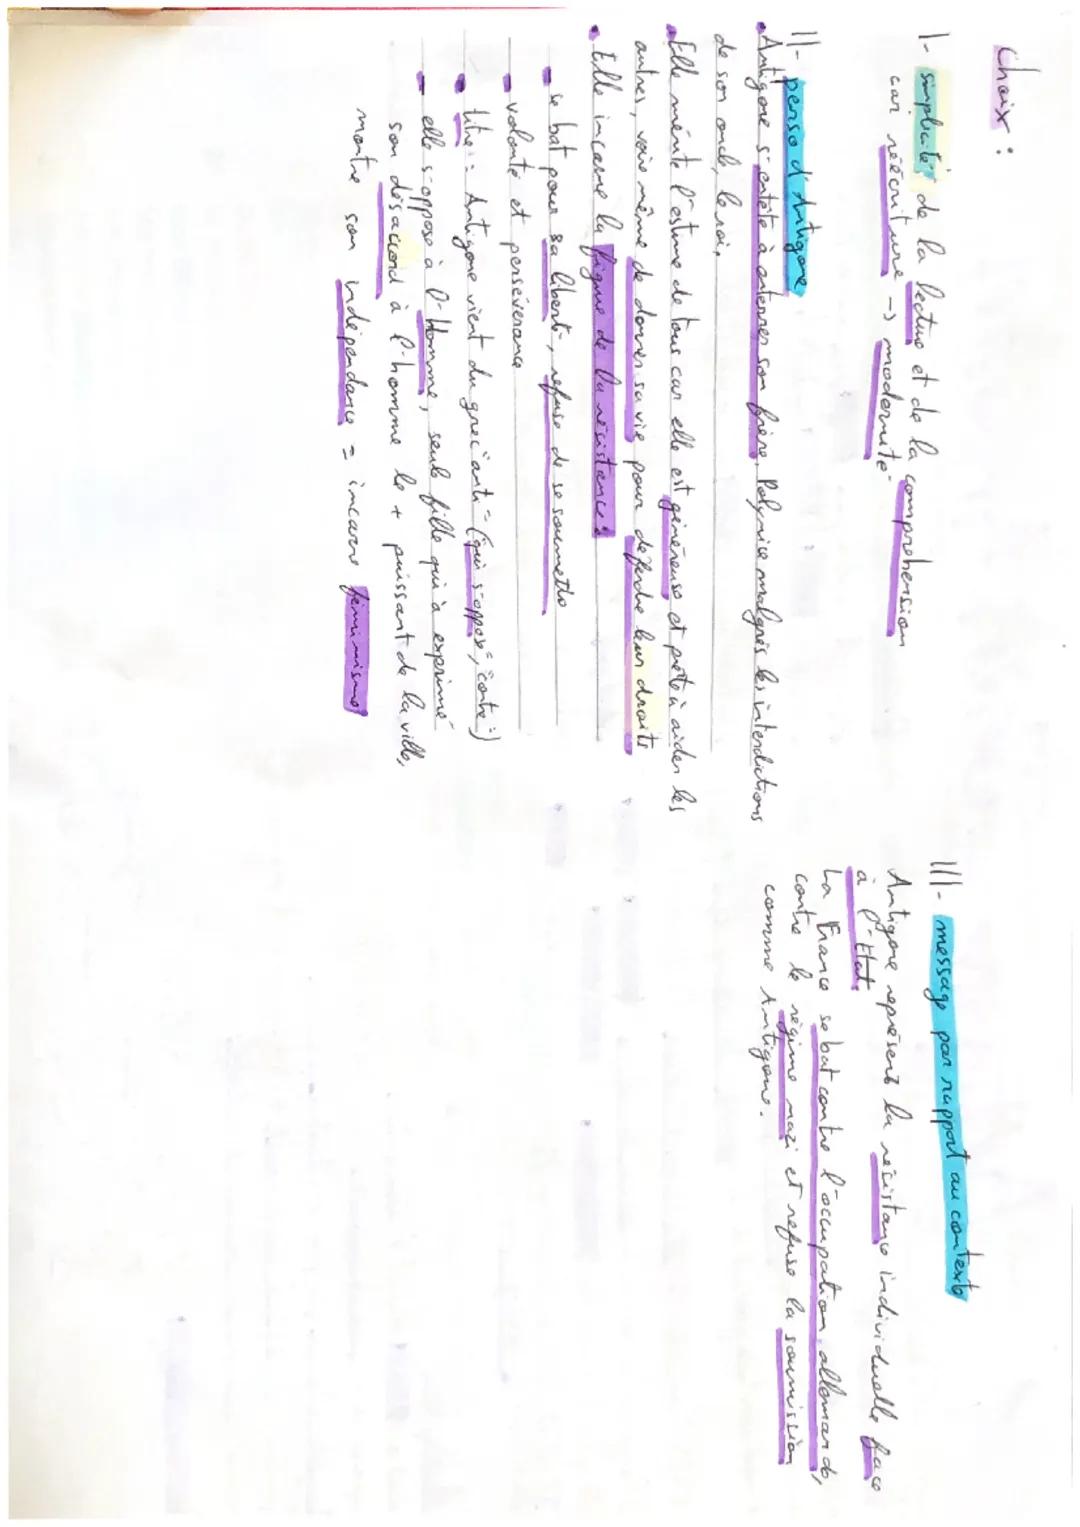 Choix :
I- simplicité de la lecture et de la compréhension
car réécriture -> modernité
II- perso d'Antigone
• Antigone s'entête à enterrer son frère, Polynice malgrés les interdictions
de son oncle, le roi,
• Elle mérite l'estime de tous car elle est généreuse et prête à aider les
autres, voire même de donner sa vie pour défendre leur droits
• Elle incarne la figure de la résistance :
• se bat pour sa liberté, refuse de se soumettre
• volonté et persévérance
• titre : Antigone vient du grec "anti" = (qui s'oppose, "contre")
• elle s'oppose à l'Homme, seule fille qui à exprimé
son désaccord à l'homme le + puissant de la ville,
montre son indépendance = incarne féminisme
III- message par rapport au contexte
Antigone représente la résistance individuelle face
à l'Etat.
La France se bat contre l'occupation allemande,
contre le régime nazi et refuse la soumission
comme Antigone.